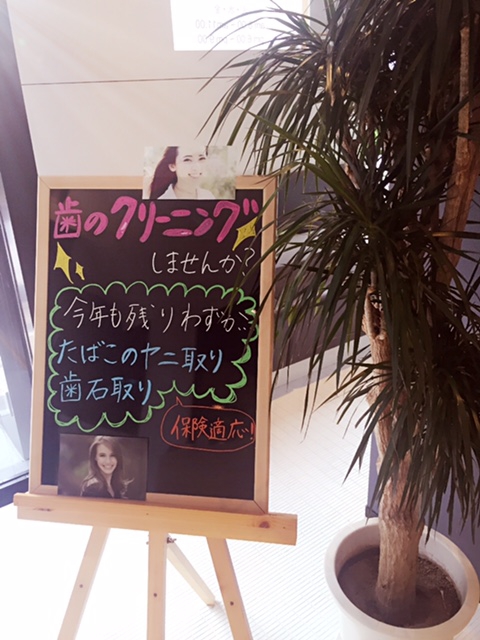 歯のクリーニング
しませんか?
今年も残りわずか…
たばこのヤニ取り
歯石取り
保険適応!